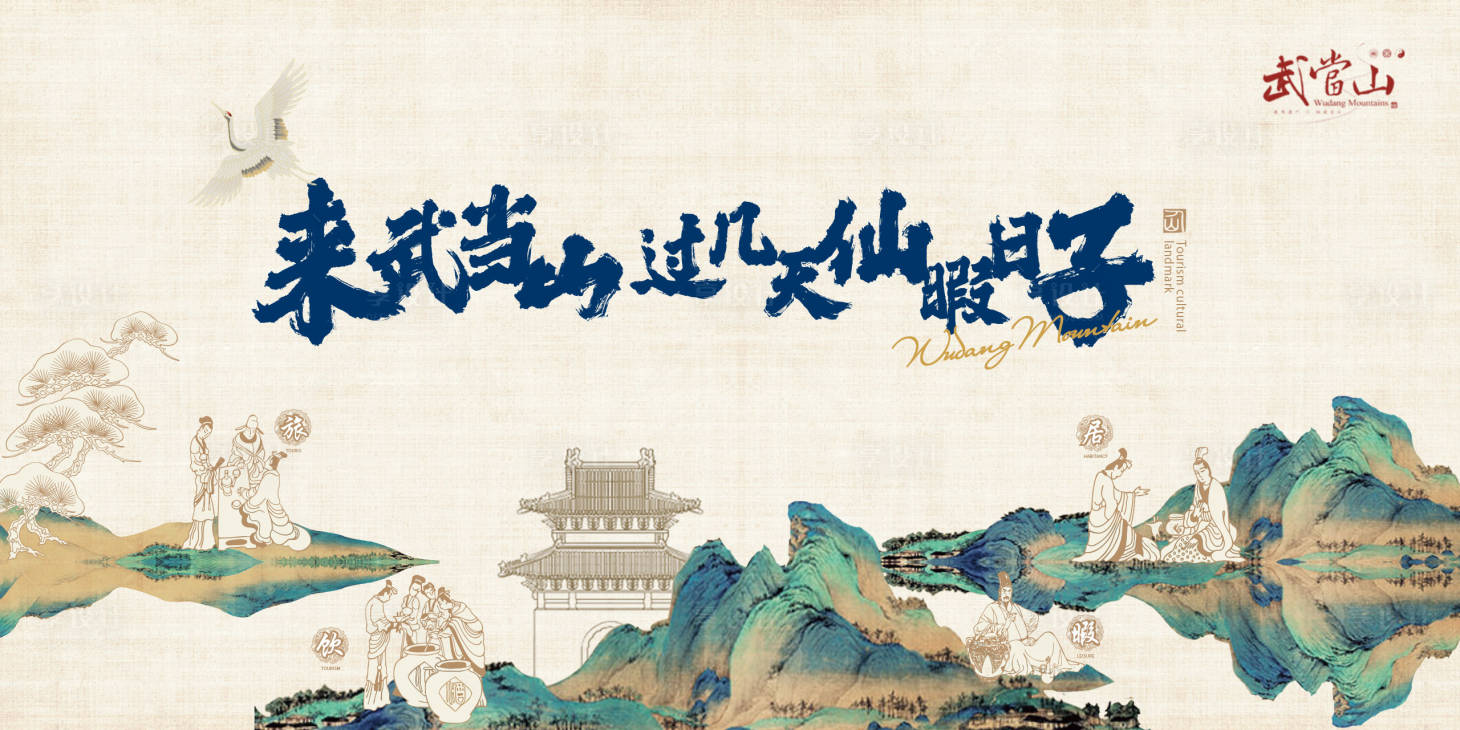 武當山
Wudang Mountains
来武当山过几天仙暇日子
Tourism cultural
landmark
Wudang Mountain
旅
TOURS
居
HABITANCY
饮
TOURISM
暇
LEISURE